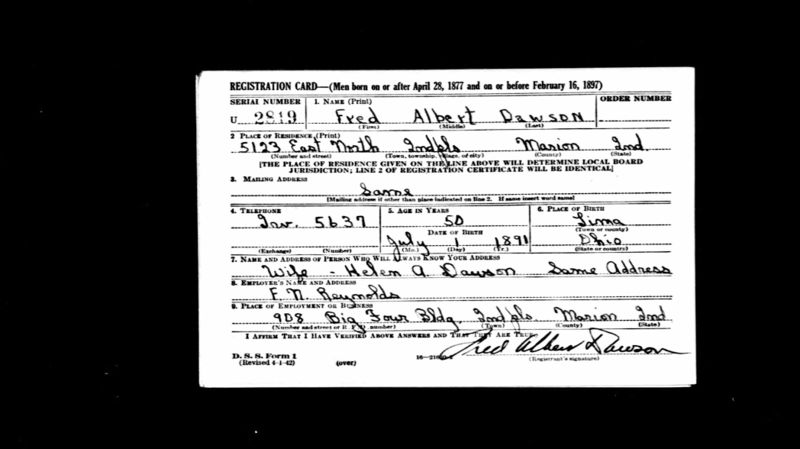 REGISTRATION CARD—(Men born on or after April 28, 1877 and on or before February 16, 1897)
SERIAL NUMBER 1. NAME (Print) ORDER NUMBER
U 2819 Fred Albert Dawson
(First) (Middle) (Last)
2 PLACE OF RESIDENCE (Print)
5123 East North Indpls Marion Ind.
(Number and street) (Town, township, village, or city) (County) (State)
[THE PLACE OF RESIDENCE GIVEN ON THE LINE ABOVE WILL DETERMINE LOCAL BOARD
JURISDICTION; LINE 2 OF REGISTRATION CERTIFICATE WILL BE IDENTICAL]
3. MAILING ADDRESS
Same
[Mailing address if other than place indicated on line 2. If same insert word same]
4. TELEPHONE 5. AGE IN YEARS 6. PLACE OF BIRTH
Irv. 5637 50 Lima
DATE OF BIRTH (Town or county)
July 1 1891 Ohio
(Exchange) (Number) (Mo.) (Day) (Yr.) (State or country)
7. NAME AND ADDRESS OF PERSON WHO WILL ALWAYS KNOW YOUR ADDRESS
Wife - Helen A Dawson Same Address
8. EMPLOYER'S NAME AND ADDRESS
F. N. Reynolds
9. PLACE OF EMPLOYMENT OR BUSINESS
908 Big Four Bldg. Indpls. Marion Ind
(Number and street or R. F. D. number) (Town) (County) (State)
I AFFIRM THAT I HAVE VERIFIED ABOVE ANSWERS AND THAT THEY ARE TRUE.
Fred Albert Dawson
D. S. S. Form 1
(Revised 4-1-42) (over) (Registrant's signature)